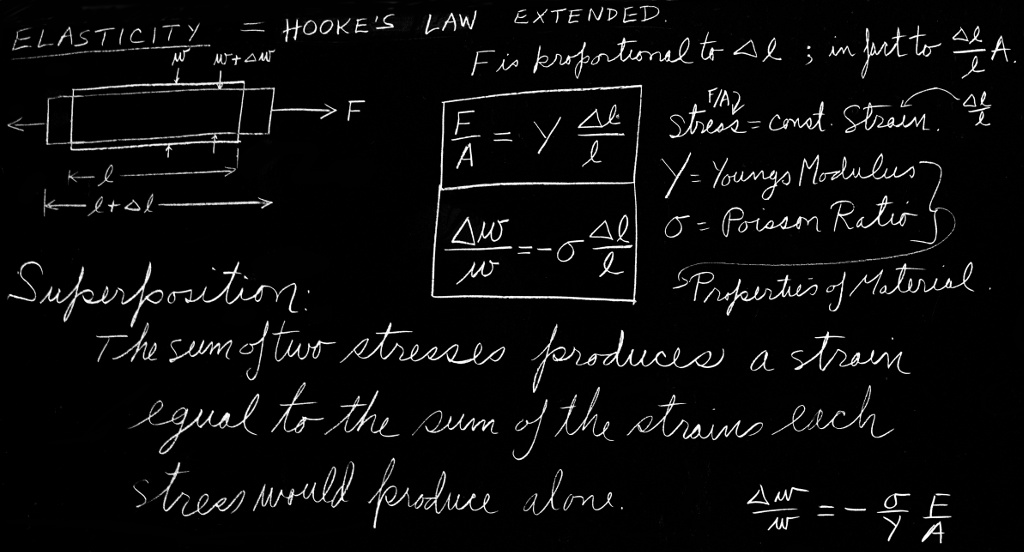 ELASTICITY = HOOKE'S LAW EXTENDED.
w w+Δw
F
l
l+Δl
F is proportional to Δl ; in fact to Δl/l A.
F/A = Y Δl/l
Δw/w = -σ Δl/l
F/A
stress = const. strain. Δl/l
Y = Youngs Modulus
σ = Poisson Ratio
Properties of Material.
Superposition:
The sum of two stresses produces a strain
equal to the sum of the strains each
stress would produce alone.
Δw/w = - σ/Y F/A